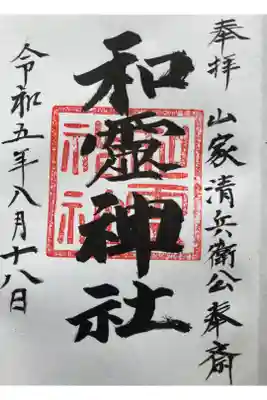 奉拝 山家清兵衛公奉斎
和霊神社
令和五年八月十八日